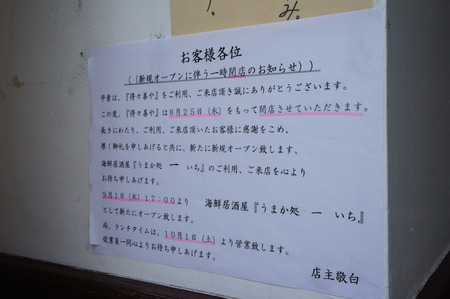 み。
お客様各位
((新規オープンに伴う一時閉店のお知らせ))
平素は、『得々喜や』をご利用、ご来店頂き誠にありがとうございます。
この度、『得々喜や』は８月２５日（水）をもって閉店させていただきます。
長きにわたり、ご利用、ご来店頂いたお客様に感謝をこめ、
厚く御礼を申しあげると共に、新たに新規オープン致します、
海鮮居酒屋『うまか処　一　いち』のご利用、ご来店を心より
お待ち申しあげます。
９月１日（木）１７：００より　海鮮居酒屋『うまか処　一　いち』
として新たにオープン致します。
尚、ランチタイムは、１０月１日（土）より営業致します。
従業員一同心よりお待ち申しあげます。
店主敬白